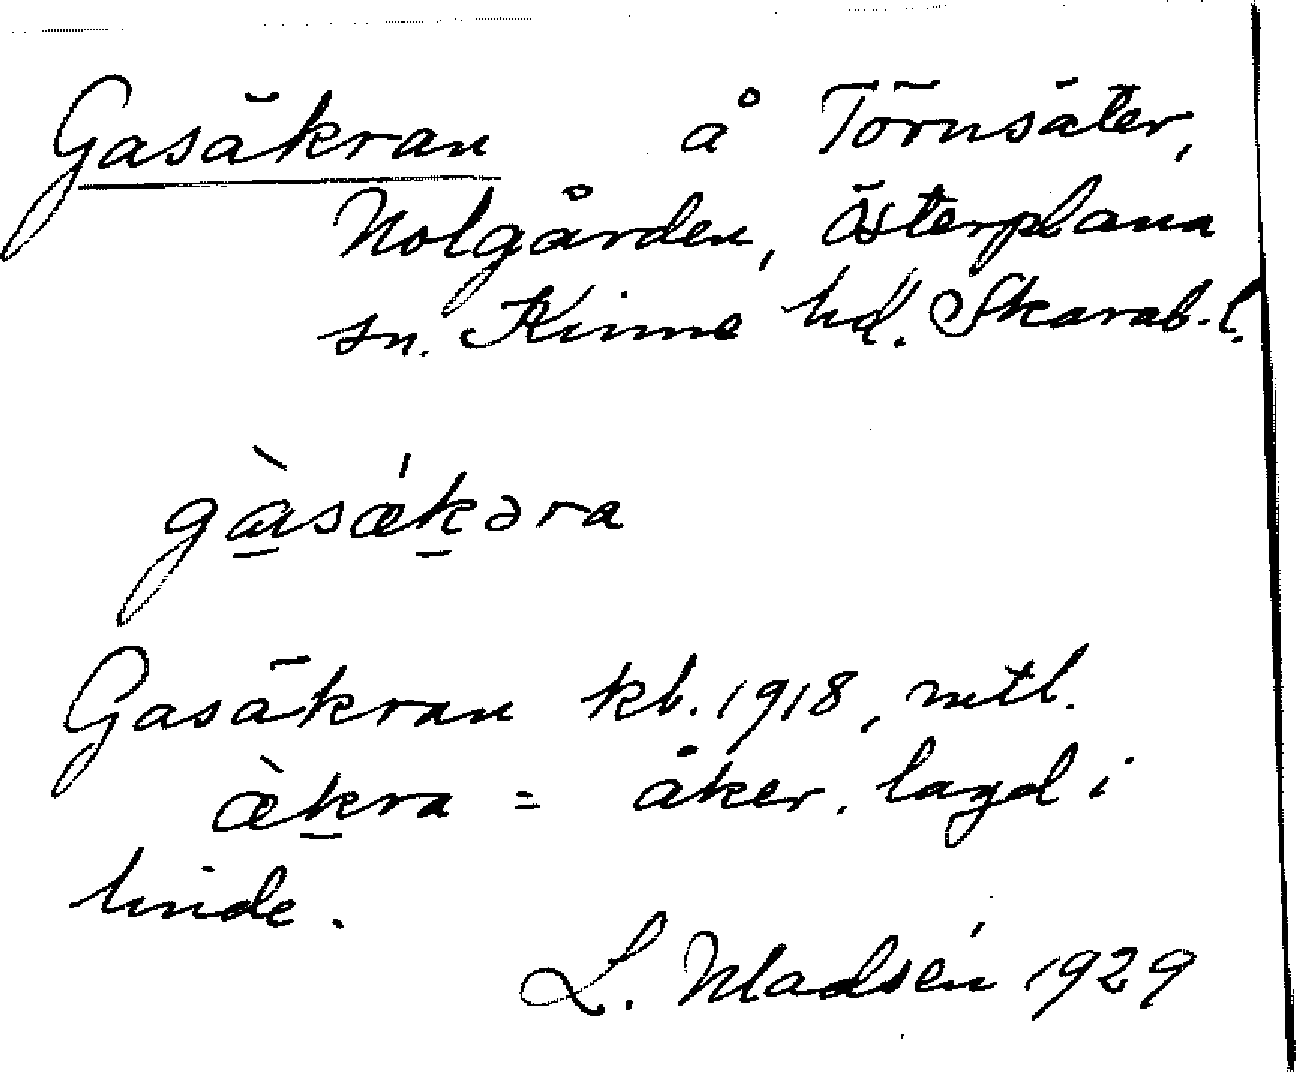 Gasäkran å Törnsäter,
Nolgården, Österplana
sn. Kinne hd. Skarab. l.
gàsǽkəra
Gasäkran kb. 1918, mtl.
æ̀kra = åker. lagd i
linde.
L. Madsén 1929